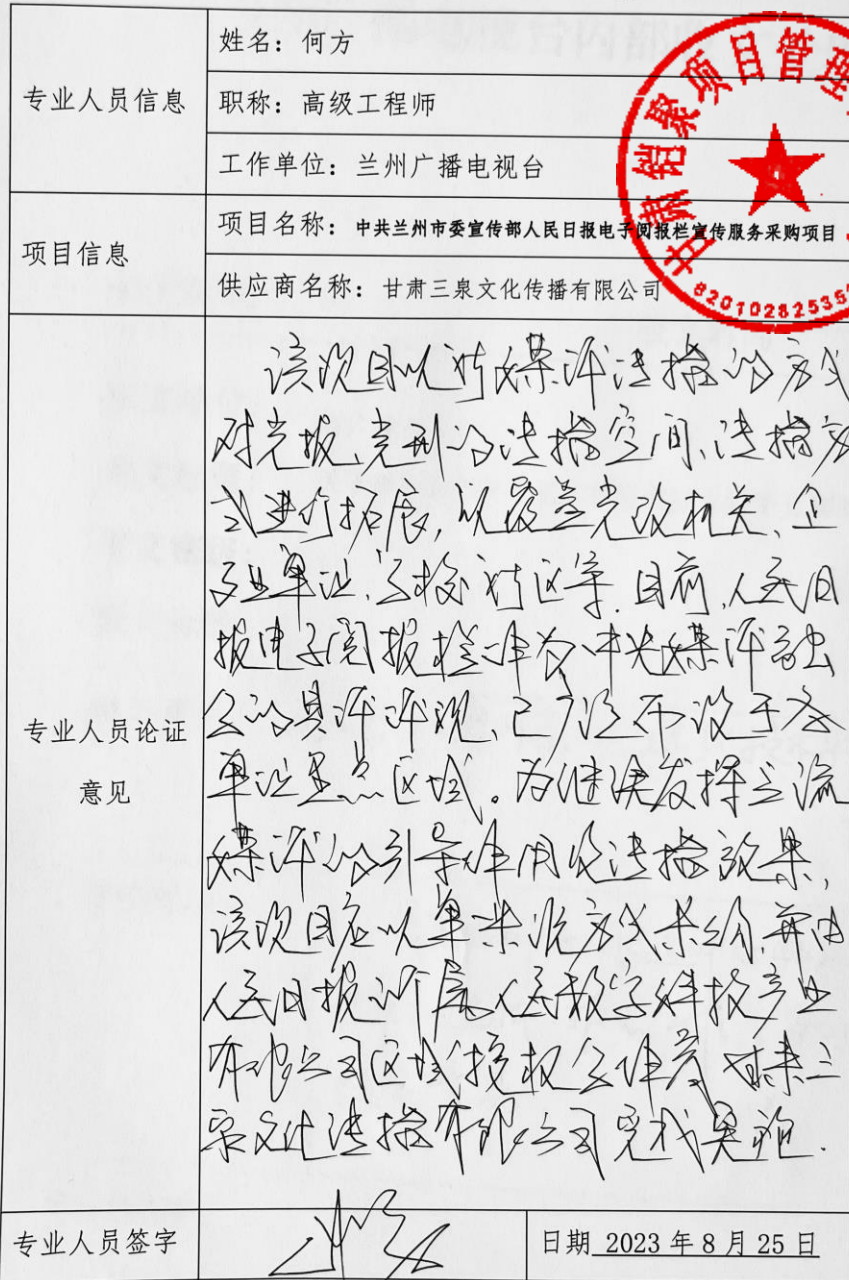 专业人员信息
姓名：何方
职称：高级工程师
工作单位：兰州广播电视台
项目信息
项目名称：中共兰州市委宣传部人民日报电子阅报栏宣传服务采购项目
供应商名称：甘肃三泉文化传播有限公司
甘肃铠聚项目管理
6201028253
专业人员论证
意见
该项目以新媒体传播的方式
对党报、党刊的传播空间、传播方
式进行拓展，以覆盖党政机关、企
事业单位、学校、社区等。目前，人民日
报电子阅报栏作为中央媒体融
合的具体体现，已广泛布设于各
单位重点区域。为继续发挥主流
媒体的引导作用及传播效果，
该项目应以单一来源方式采购，并由
人民日报所属人民数字科技产业
有限公司区域授权合作者甘肃三
泉文化传播有限公司完成实施.
专业人员签字
日期 2023 年 8 月 25 日